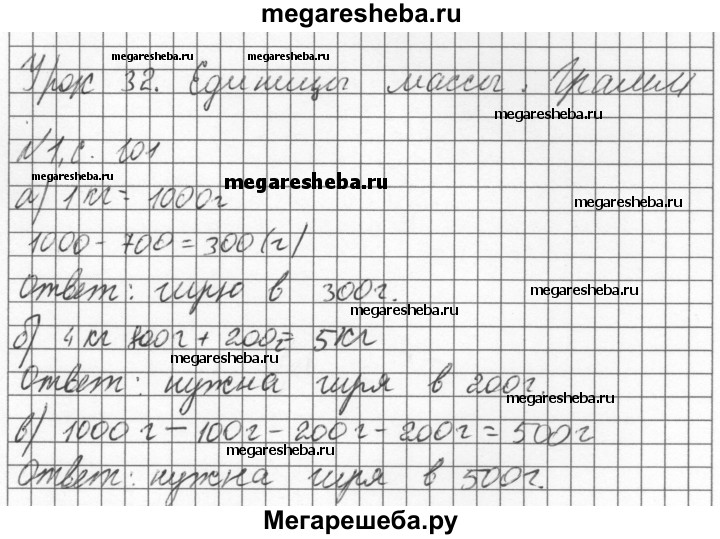 megaresheba.ru
megaresheba.ru megaresheba.ru
Урок 32. Единицы массы. Грамм
megaresheba.ru
№1, с. 101
megaresheba.ru megaresheba.ru
а) 1 кг = 1000г
megaresheba.ru
1000 - 700 = 300 (г)
Ответ: гирю в 300г.
megaresheba.ru
megaresheba.ru
б) 4 кг 800г + 200г = 5кг
megaresheba.ru
Ответ: нужна гиря в 200г.
megaresheba.ru
в) 1000 г - 100г - 200г - 200г = 500г
megaresheba.ru
Ответ: нужна гиря в 500г.
Мегарешеба.ру